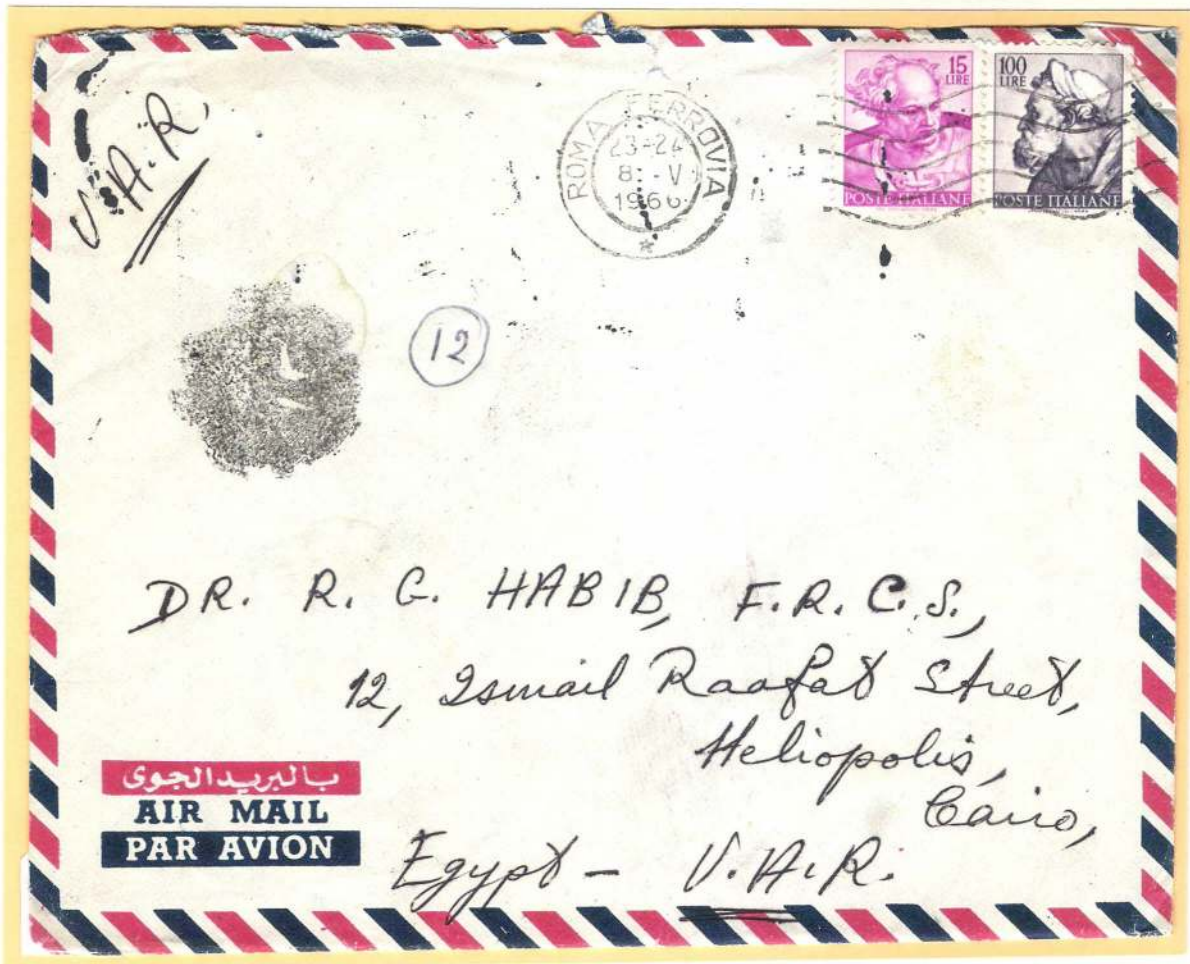 U.A.R.
ROMA FERROVIA
23-24
8 - V
1966
*
15
LIRE
POSTE ITALIANE
100
LIRE
POSTE ITALIANE
12
DR. R. G. HABIB, F.R.C.S.,
12, Ismail Raafat Street,
Heliopolis,
Cairo,
Egypt - U.A.R.
بالبريد الجوى
AIR MAIL
PAR AVION